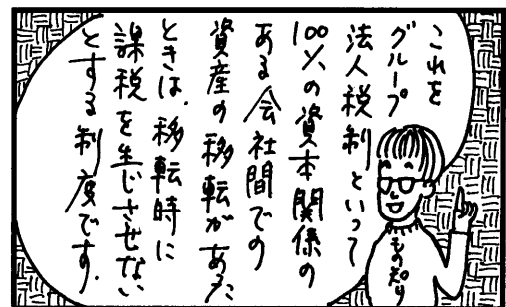 これを
グループ
法人税制といって
100%の資本関係の
ある会社間での
資産の移転があった
ときは、移転時に
課税を生じさせない
とする制度です。
もの知り